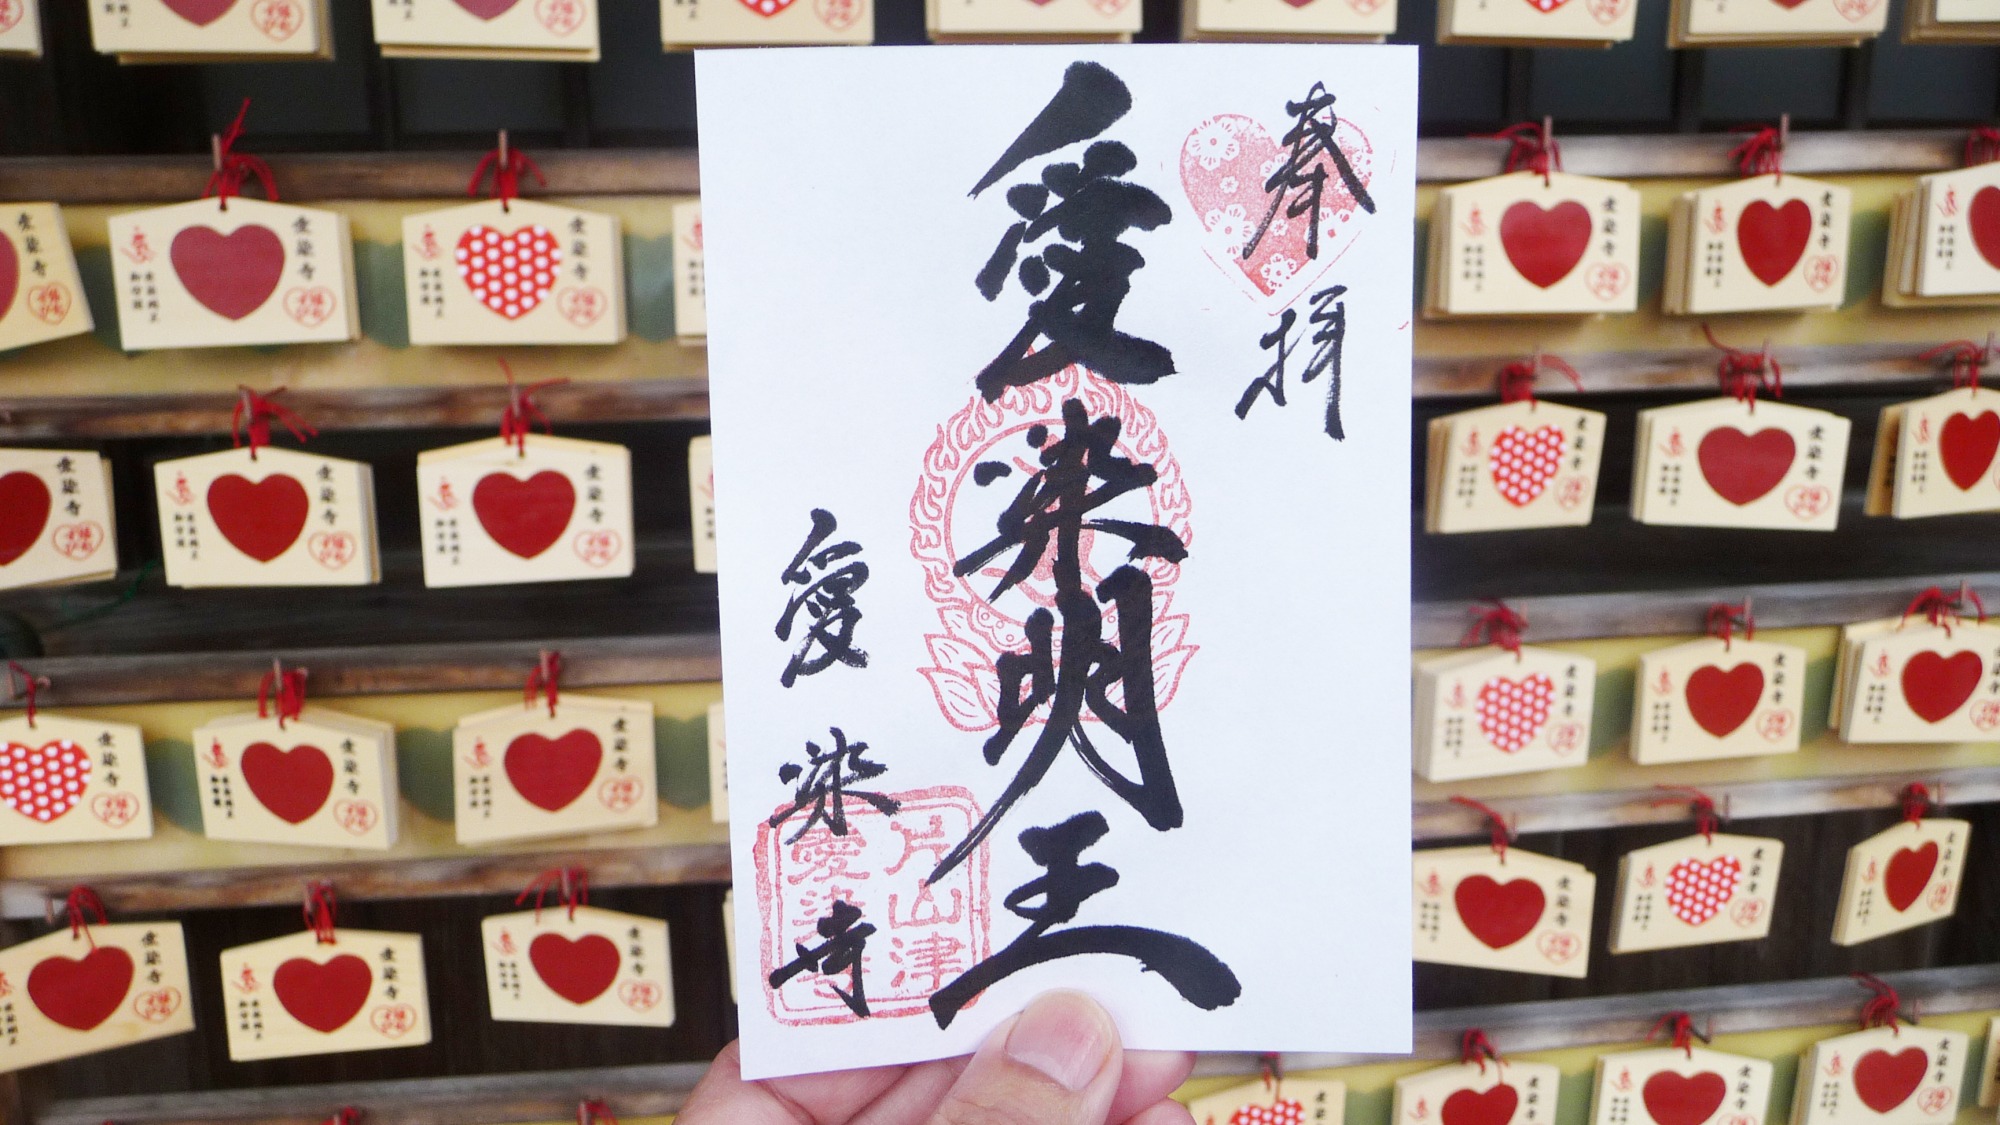 奉拝
愛染明王
愛染寺
片山津
愛染寺
愛染寺